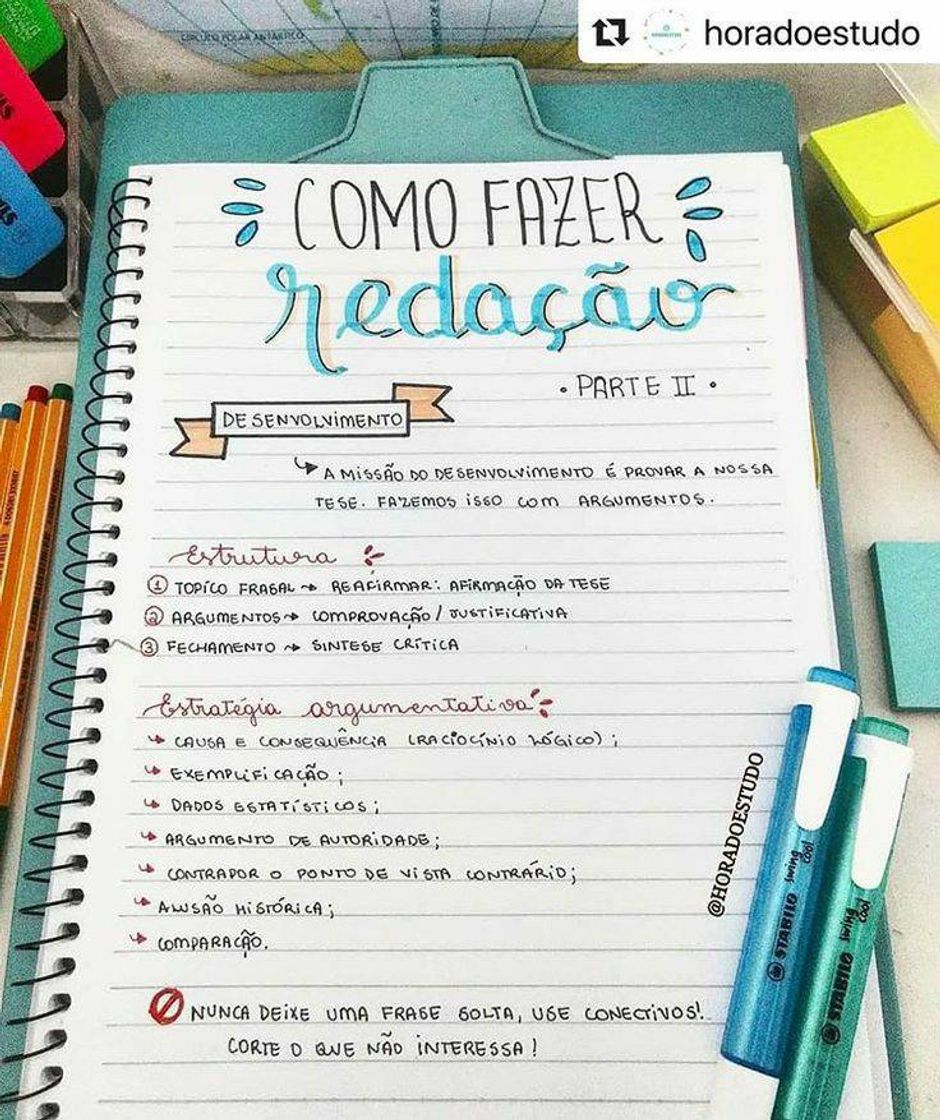 horadoestudo
CÍRCULO POLAR ANTÁRTICO
COMO FAZER
redação
• PARTE II •
DESENVOLVIMENTO
↳ A MISSÃO DO DESENVOLVIMENTO É PROVAR A NOSSA
TESE. FAZEMOS ISSO COM ARGUMENTOS.
Estrutura
① TOPÍCO FRASAL → REAFIRMAR: AFIRMAÇÃO DA TESE
② ARGUMENTOS → COMPROVAÇÃO / JUSTIFICATIVA
③ FECHAMENTO → SINTESE CRÍTICA
Estratégia argumentativa
↳ CAUSA E CONSEQUÊNCIA (RACIOCÍNIO LÓGICO);
↳ EXEMPLIFICAÇÃO;
↳ DADOS ESTATÍSTICOS;
↳ ARGUMENTO DE AUTORIDADE;
↳ CONTRAPOR O PONTO DE VISTA CONTRÁRIO;
↳ ALUSÃO HISTÓRICA;
↳ COMPARAÇÃO.
NUNCA DEIXE UMA FRASE SOLTA, USE CONECTIVOS!
CORTE O QUE NÃO INTERESSA!
@HORADOESTUDO
STABILO swing cool
STABILO swing cool